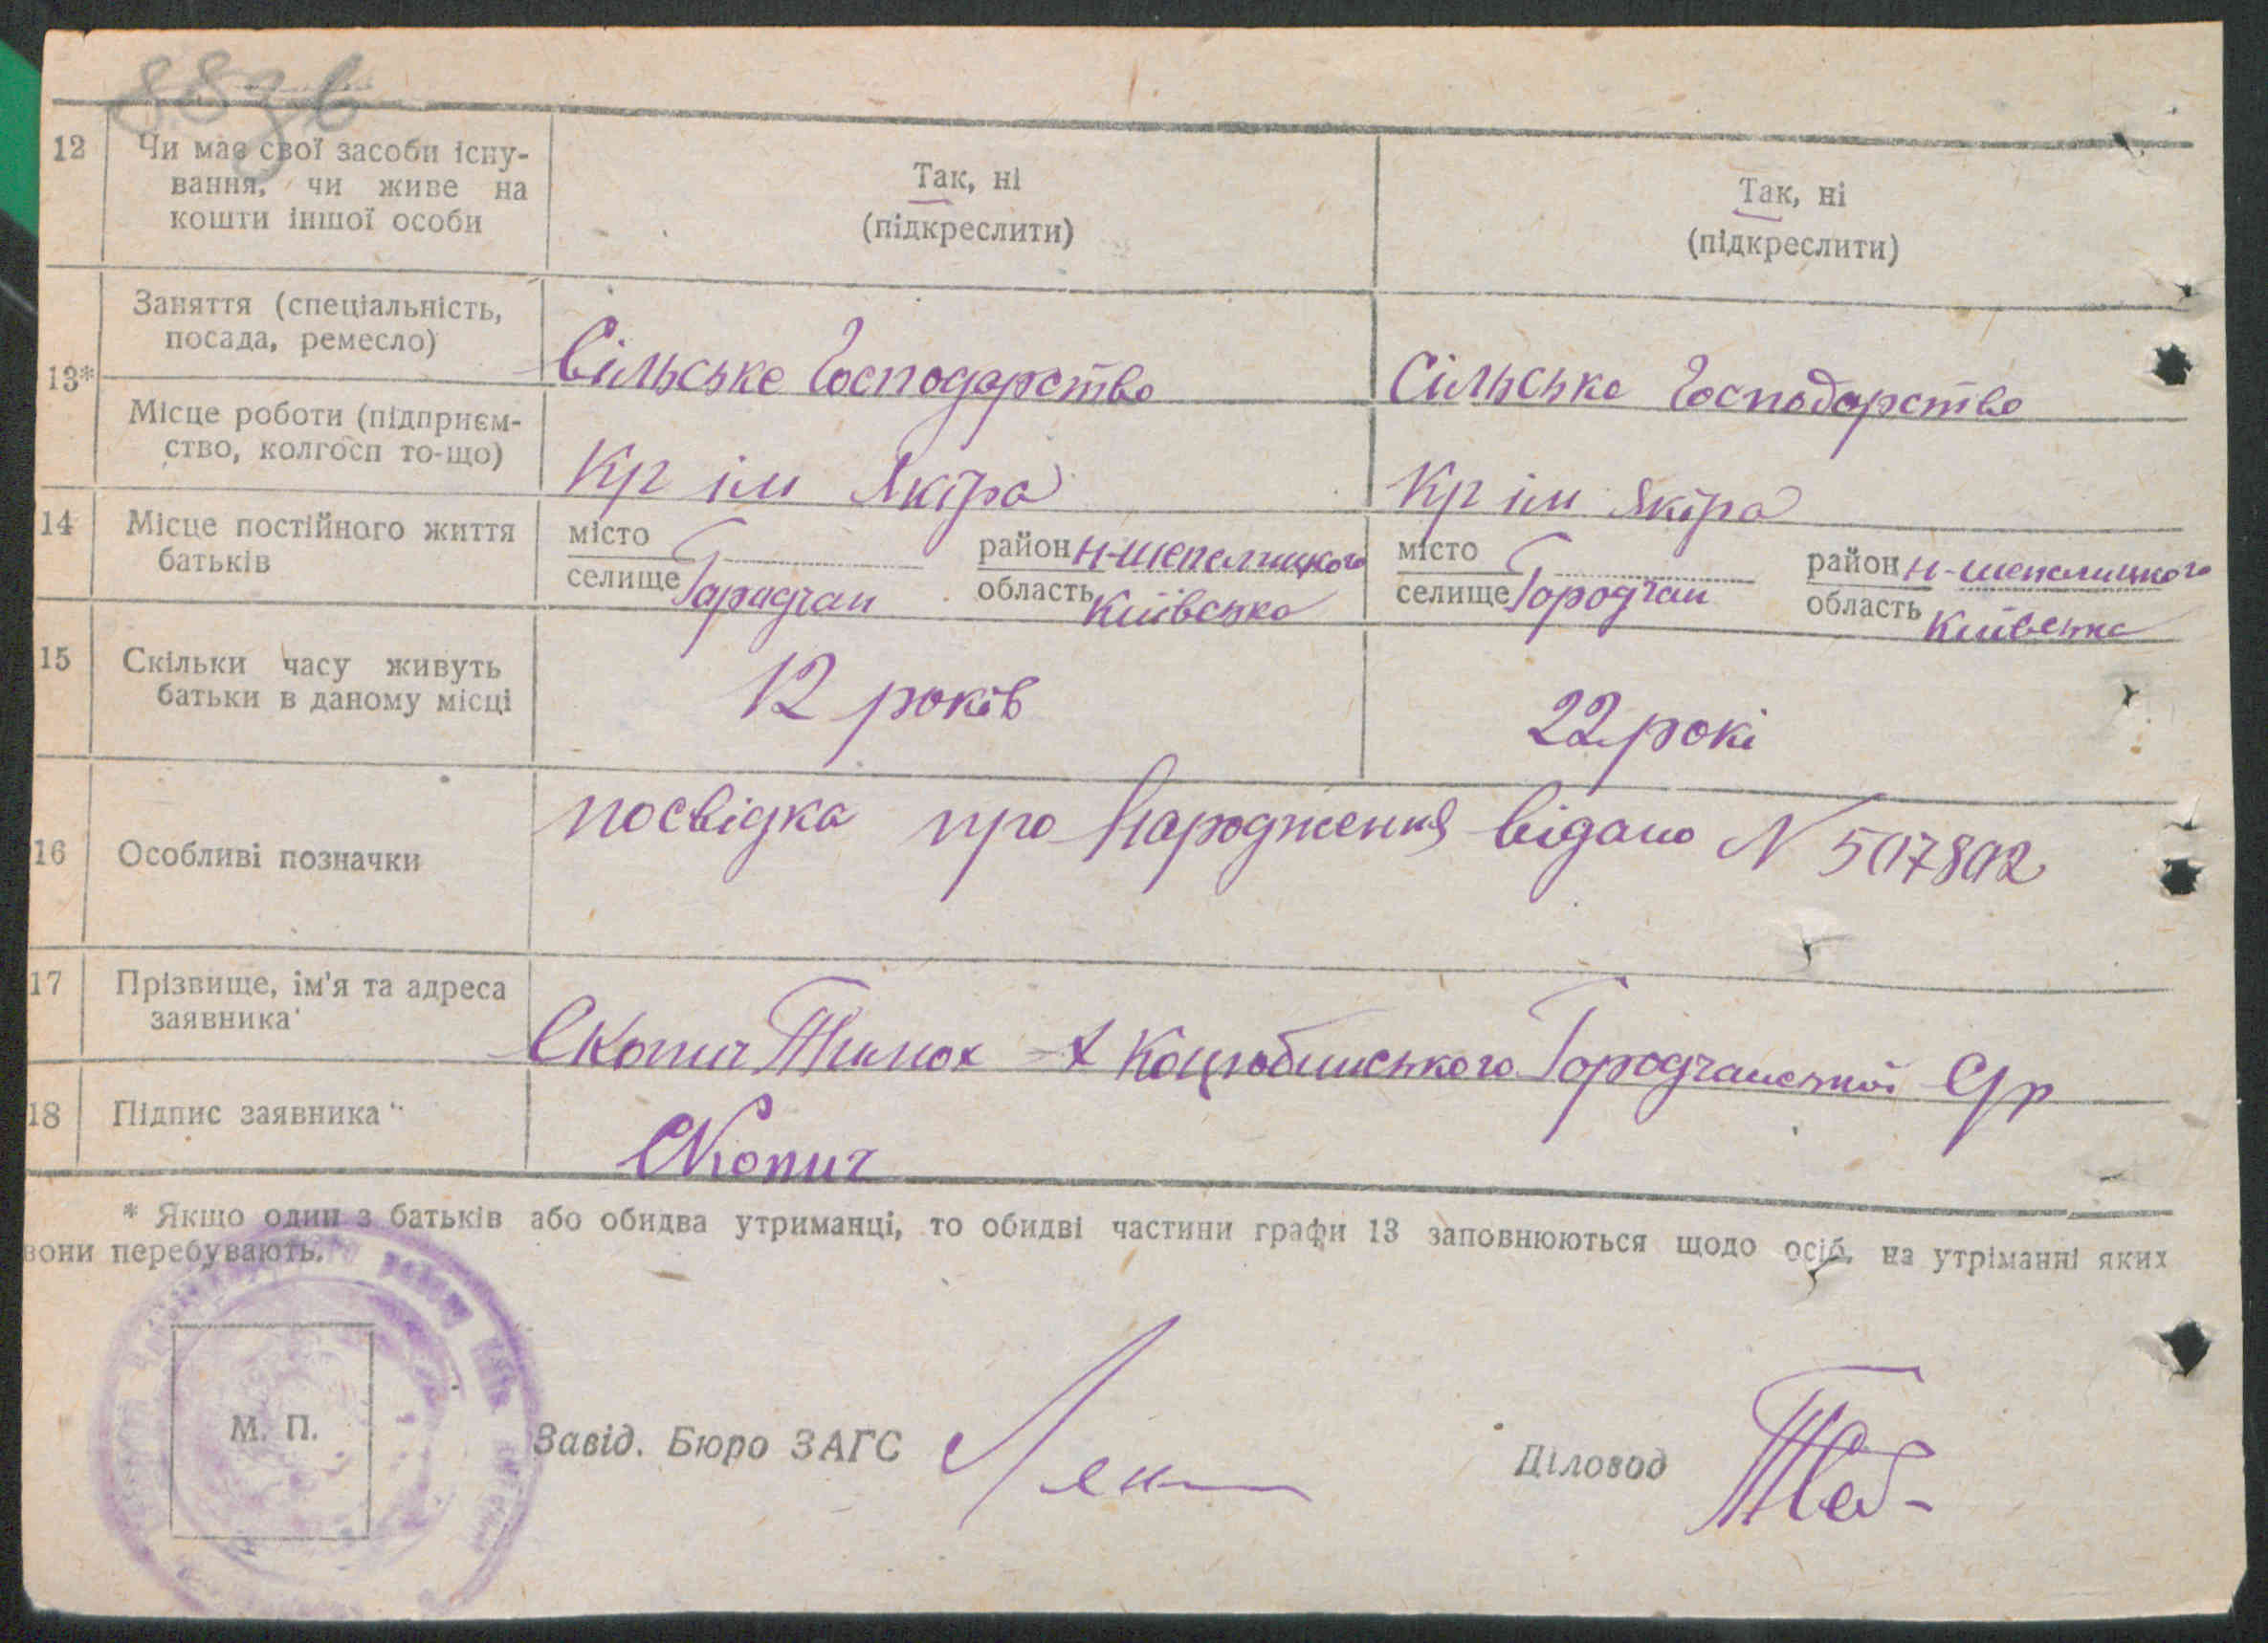 883б
12 Чи має свої засоби існу-
вання, чи живе на
кошти іншої особи
Так, ні
(підкреслити)
Так, ні
(підкреслити)
13*
Заняття (спеціальність,
посада, ремесло)
Сільське Господарство
Сільське Господарство
Місце роботи (підприєм-
ство, колгосп то-що)
Кр ім Якіра
Кр ім Якіра
14 Місце постійного життя
батьків
місто
селище Городчан
район Н-шепелицкого
область Київська
місто
селище Городчан
район Н-шепелицкого
область Київська
15 Скільки часу живуть
батьки в даному місці
12 років
22 рокі
16 Особливі позначки
посвідка про народження відано N 507802
17 Прізвище, ім'я та адреса
заявника
Скопич Тимох х Коцюбинського Городчанської Ср
18 Підпис заявника
Скопич
* Якщо один з батьків або обидва утриманці, то обидві частини графи 13 заповнюються щодо осіб, на утріманні яких
вони перебувають.
М. П.
Завід. Бюро ЗАГС
Діловод